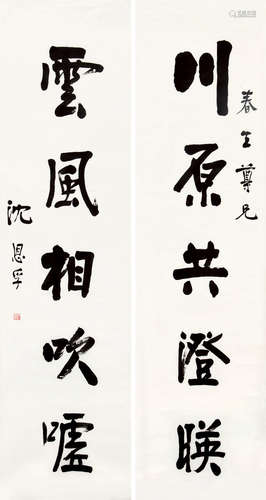 川原共澄映
春生尊兄
雲風相吹嘘
沈恩孚